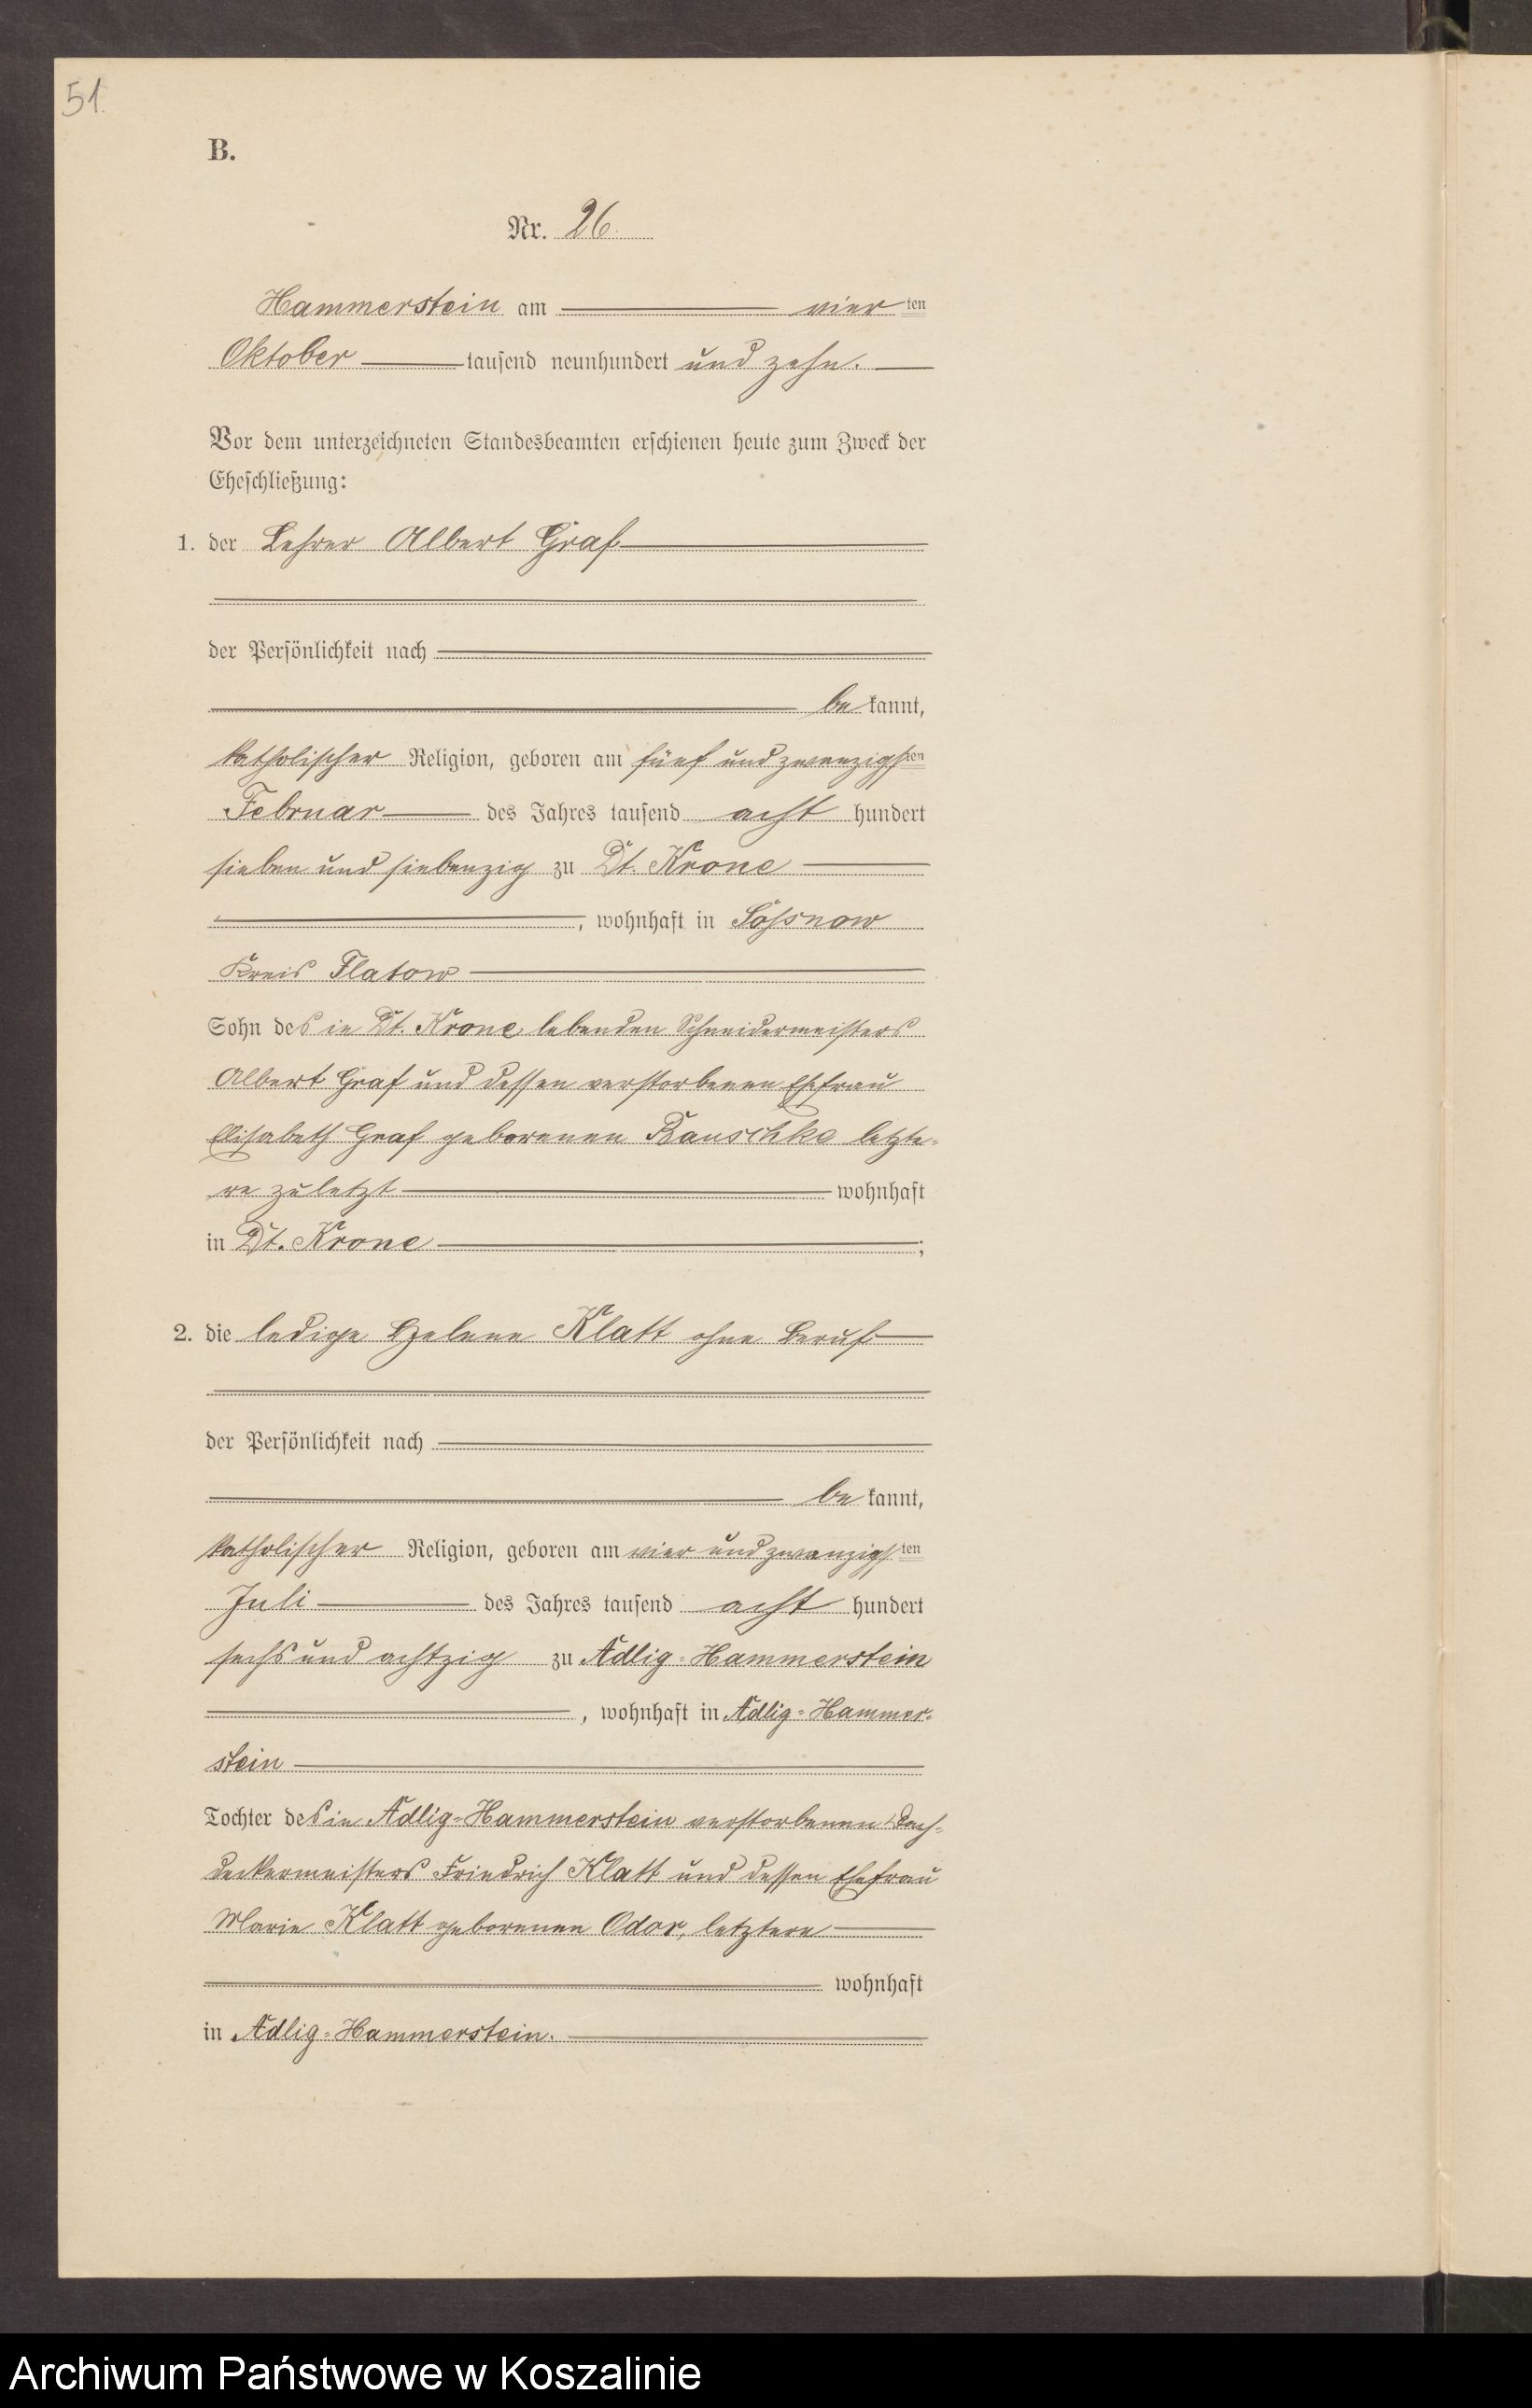 51.
B.
Nr. 26.
Hammerstein am vierten
Oktober tausend neunhundert und zehn.
Vor dem unterzeichneten Standesbeamten erschienen heute zum Zweck der
Eheschließung:
1. der Lehrer Albert Graf
der Persönlichkeit nach
bekannt,
katholischer Religion, geboren am fünf und zwanzigsten
Februar des Jahres tausend acht hundert
sieben und siebenzig zu Dt. Krone
, wohnhaft in Sossnow
Kreis Flatow
Sohn des in Dt. Krone lebenden Schneidermeisters
Albert Graf und dessen verstorbenen Ehefrau
Elisabeth Graf geborenen Bauschke letzte-
re zuletzt wohnhaft
in Dt. Krone ;
2. die ledige Helene Klatt ohne Beruf
der Persönlichkeit nach
bekannt,
katholischer Religion, geboren am vier und zwanzigsten
Juli des Jahres tausend acht hundert
sechs und achtzig zu Adlig-Hammerstein
, wohnhaft in Adlig-Hammer-
stein
Tochter des in Adlig-Hammerstein verstorbenen Dach-
deckermeisters Friedrich Klatt und dessen Ehefrau
Marie Klatt geborenen Odor, letztere
wohnhaft
in Adlig-Hammerstein.
Archiwum Państwowe w Koszalinie